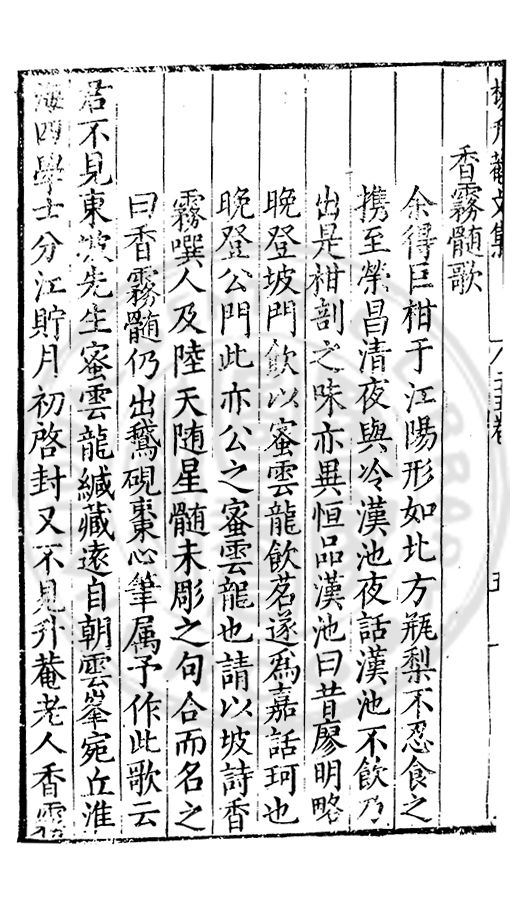 楊升菴文集
香霧髓歌
余得巨柑于江陽形如北方瓶梨不忍食之
携至榮昌清夜與冷漢池夜話漢池不飲乃
出是柑剖之味亦異恒品漢池曰昔廖明略
晚登坡門飲以蜜雲龍飲茗遂爲嘉話珂也
晚登公門此亦公之蜜雲龍也請以坡詩香
霧噀人及陸天随星髓未彫之句合而名之
曰香霧髓仍出鵞硯棗心筆属予作此歌云
君不見東波先生蜜雲龍緘藏遠自朝雲峯宛丘淮
海四學士分江貯月初啓封又不見升菴老人香霧